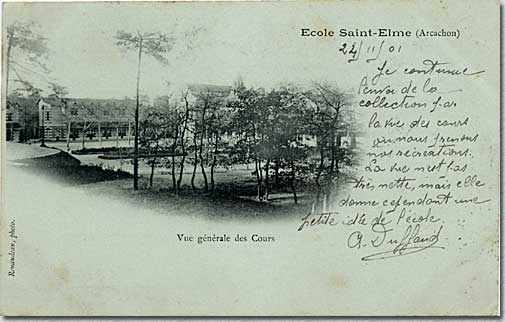 Ecole Saint-Elme (Arcachon)
24/11/01
Je continue
l'envoi de la
collection par
la vue des cours
où nous prenons
nos récréations.
La vue n'est pas
très nette, mais elle
donne cependant une
petite idée de l'école
Vue générale des Cours
photo.